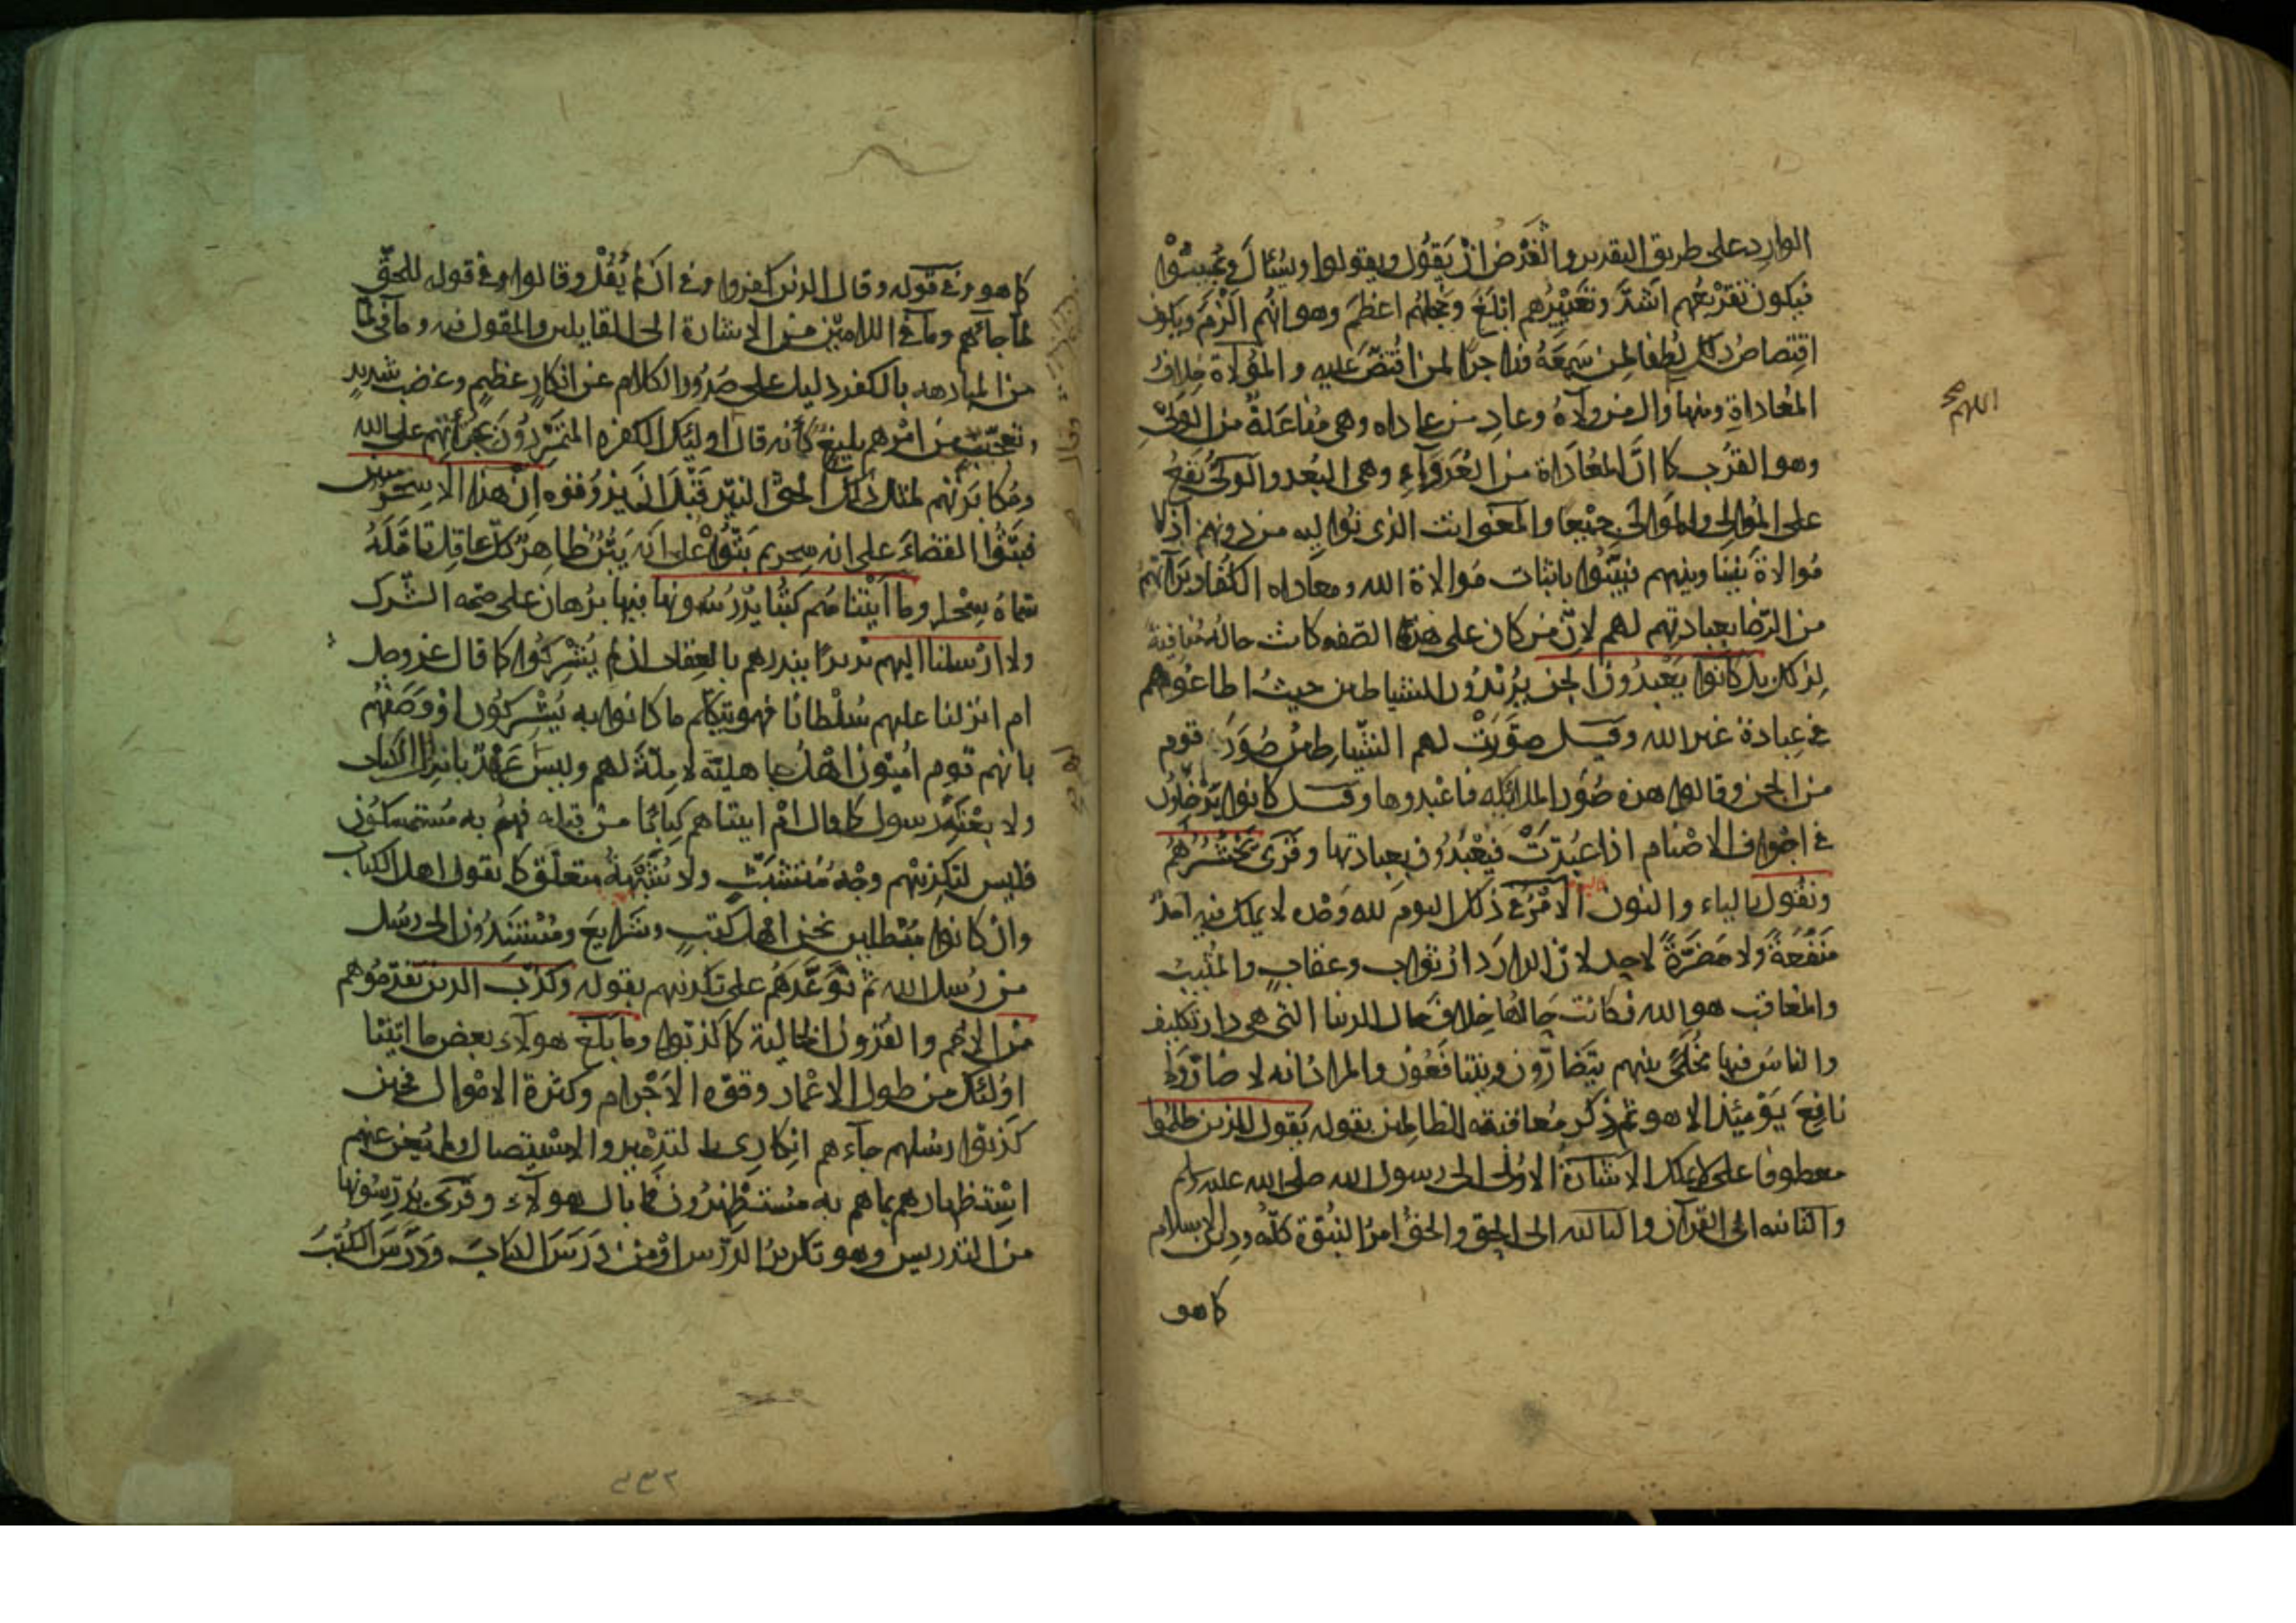 الوارد على طريق التقدير والغرض ان يَقُول ويقولوا ويسئال ويجيبوا
فيكون تقريعُهم اشدَّ وتعييرُهم ابلغَ وخجلُهم اعظمَ وهو انهُم الزمَ ويكون
اقتصاصُ ذلك لطفا لمن سَمِعَهُ وزاجرًا لمن اقتُصَّ عليه والمُوالاة خلافُ
المُعاداةِ ومنها وال من والاهُ وعادِ من عاداه وهى مُفاعَلةٌ من الوَلْىِ
وهو القُرب كما انَّ المعُاداة من العُدَوآءِ وهى البُعد والوَلىُّ يقعُ
على المُوالِى والمُوالَى جميعا والمعنى انت الذى نواليه من دونهم اذ لا
مُوالاةَ بيننا وبينهم فبيّنُوا باثبات مُوالاة الله ومعاداه الكُفّار برآءتهم
من الرّضا بعبادتهم لهم لانّ من كان على هذه الصّفه كانت حالهُ مُنافيةً
لذلك بل كانوا يَعبدُون الجن يُريدُون الشياطين حيثُ اطاعُوهم
فى عِبادة غير الله وقيل صوَّرَتْ لهم الشّياطينُ صُوَرَ قوم
من الجن وقالوا هذه صُوَر الملائكه فاعْبدوها وقيل كانوا يَدْخُلُون
فى اجْواف الاصْنام اذا عُبِدَتْ فيُعْبَدُون بعبادتها وقرئ نَحْشُرُهُم
ونقُول بالياء والنون الامْرُ فى ذلك اليوم لله وَحْده لا يملك فيه احدٌ
مَنْفَعةً ولا مَضَرَّةً لاحد لانّ الدارَ دارُ ثواب وعقابٍ والمُثيبُ
والمُعاقب هو الله فكانت حالُها خلافَ حال الدنيا التى هى دار تكليف
والناسُ فيها مُخَلًّى بينهم يتَضارُّون ويتنافَعُون والمرادُ انه لا ضارَّ ولا
نافِعَ يَوْمَئذ الا هو ثم ذكر مُعاقبته الظالمين بقوله نَقول للذين ظلمُوا
معطوفا على لا يملك الاشارةُ الاولى الى رسول الله صلى الله عليه وسلم
والثانيه الى القرآن والثالثه الى الحق والحقُّ امرُ النبُوّة كلُّه ودين الاسلام
كما هو
اللهم
كما هو وفى قوله وقال الذين كفروا وفى ان لم يُقَلْ وقالوا وفى قوله للحقّ
لما جائهم وما فى اللامَيْن من الاشارة الى القايلين والمقول فيه وما فى لمّا
من المبادهه بالكفر دليل على صُدُور الكلام عن انكارٍ عظيمٍ وغضب شديدٍ
وتعجّبٍ من امْرهم بليغٍ كأنه قال اوليئك الكفره المتمَرِّدُونَ بجرأتهم على الله
ومُكابرَتهم لمثل ذلك الحقّ النيّر قَبْلَ ان يَذُوقوه اِنْ هذا الا سحرٌ مبين
فبَتُّوا القضاءَ على انه سحر ثم بتُّوْهُ على انه بَيِّنٌ ظاهِرٌ كلّ عاقل تامَّلَهُ
سمّاهُ سِحْرا وما آتيْناهُم كتُبا يَدْرُسُونها فيها بُرهان على صحّه الشّرك
ولا ارْسلنا اليهم نذيرًا ينذرهم بالعِقاب ان لم يُشْركُوا كما قال عز وجل
ام انزلنا عليهم سُلْطانا فهو يتكلم بما كانوا به يُشْرِكُون او وصَفَهُم
بانهم قوم اُمّيّون اهْلُ جاهليّة لا مِلّةَ لهم وليس لهم عَهْدٌ بانزال الكتاب
ولا بعْثة رسول كما قال امْ آتيناهم كِتابًا منْ قبْله فهُم به مُستمسكُون
فليس لتكذيبهم وجْهٌ مُتشبَّثٌ ولا شُبْهةُ متعلَّق كما يقول اهل الكتاب
وان كانوا مُبْطلين نحن اهل كتبٍ وشرايعَ ومُسْتَنِدُون الى رسُل
من رُسل الله ثم تَوَعَّدَهُم على تكذيبهم بقوله وكذّب الذين تقدّمُوهم
منَ الاُمَم والقُرون الخالية كما كذّبُوا وما بَلَغ هولآء بعض ما اتَيْنا
اولئك من طول الاعْمار وقوّه الاَجْرام وكثرة الامْوال فحين
كذبوا رسُلهم جآءهم انكارى بالتدْمير والاسْتيصال ولم يُغن عنهم
اسْتظهارهم بماهم به مُستَظْهِرُون فما بال هولآء وقُرِئ يُدَرِّسُونها
من التدريس وهو تكريرُ الدرْس اوْ من دَرَّسَ الكتابَ ودَرَّسَ الكُتُبَ